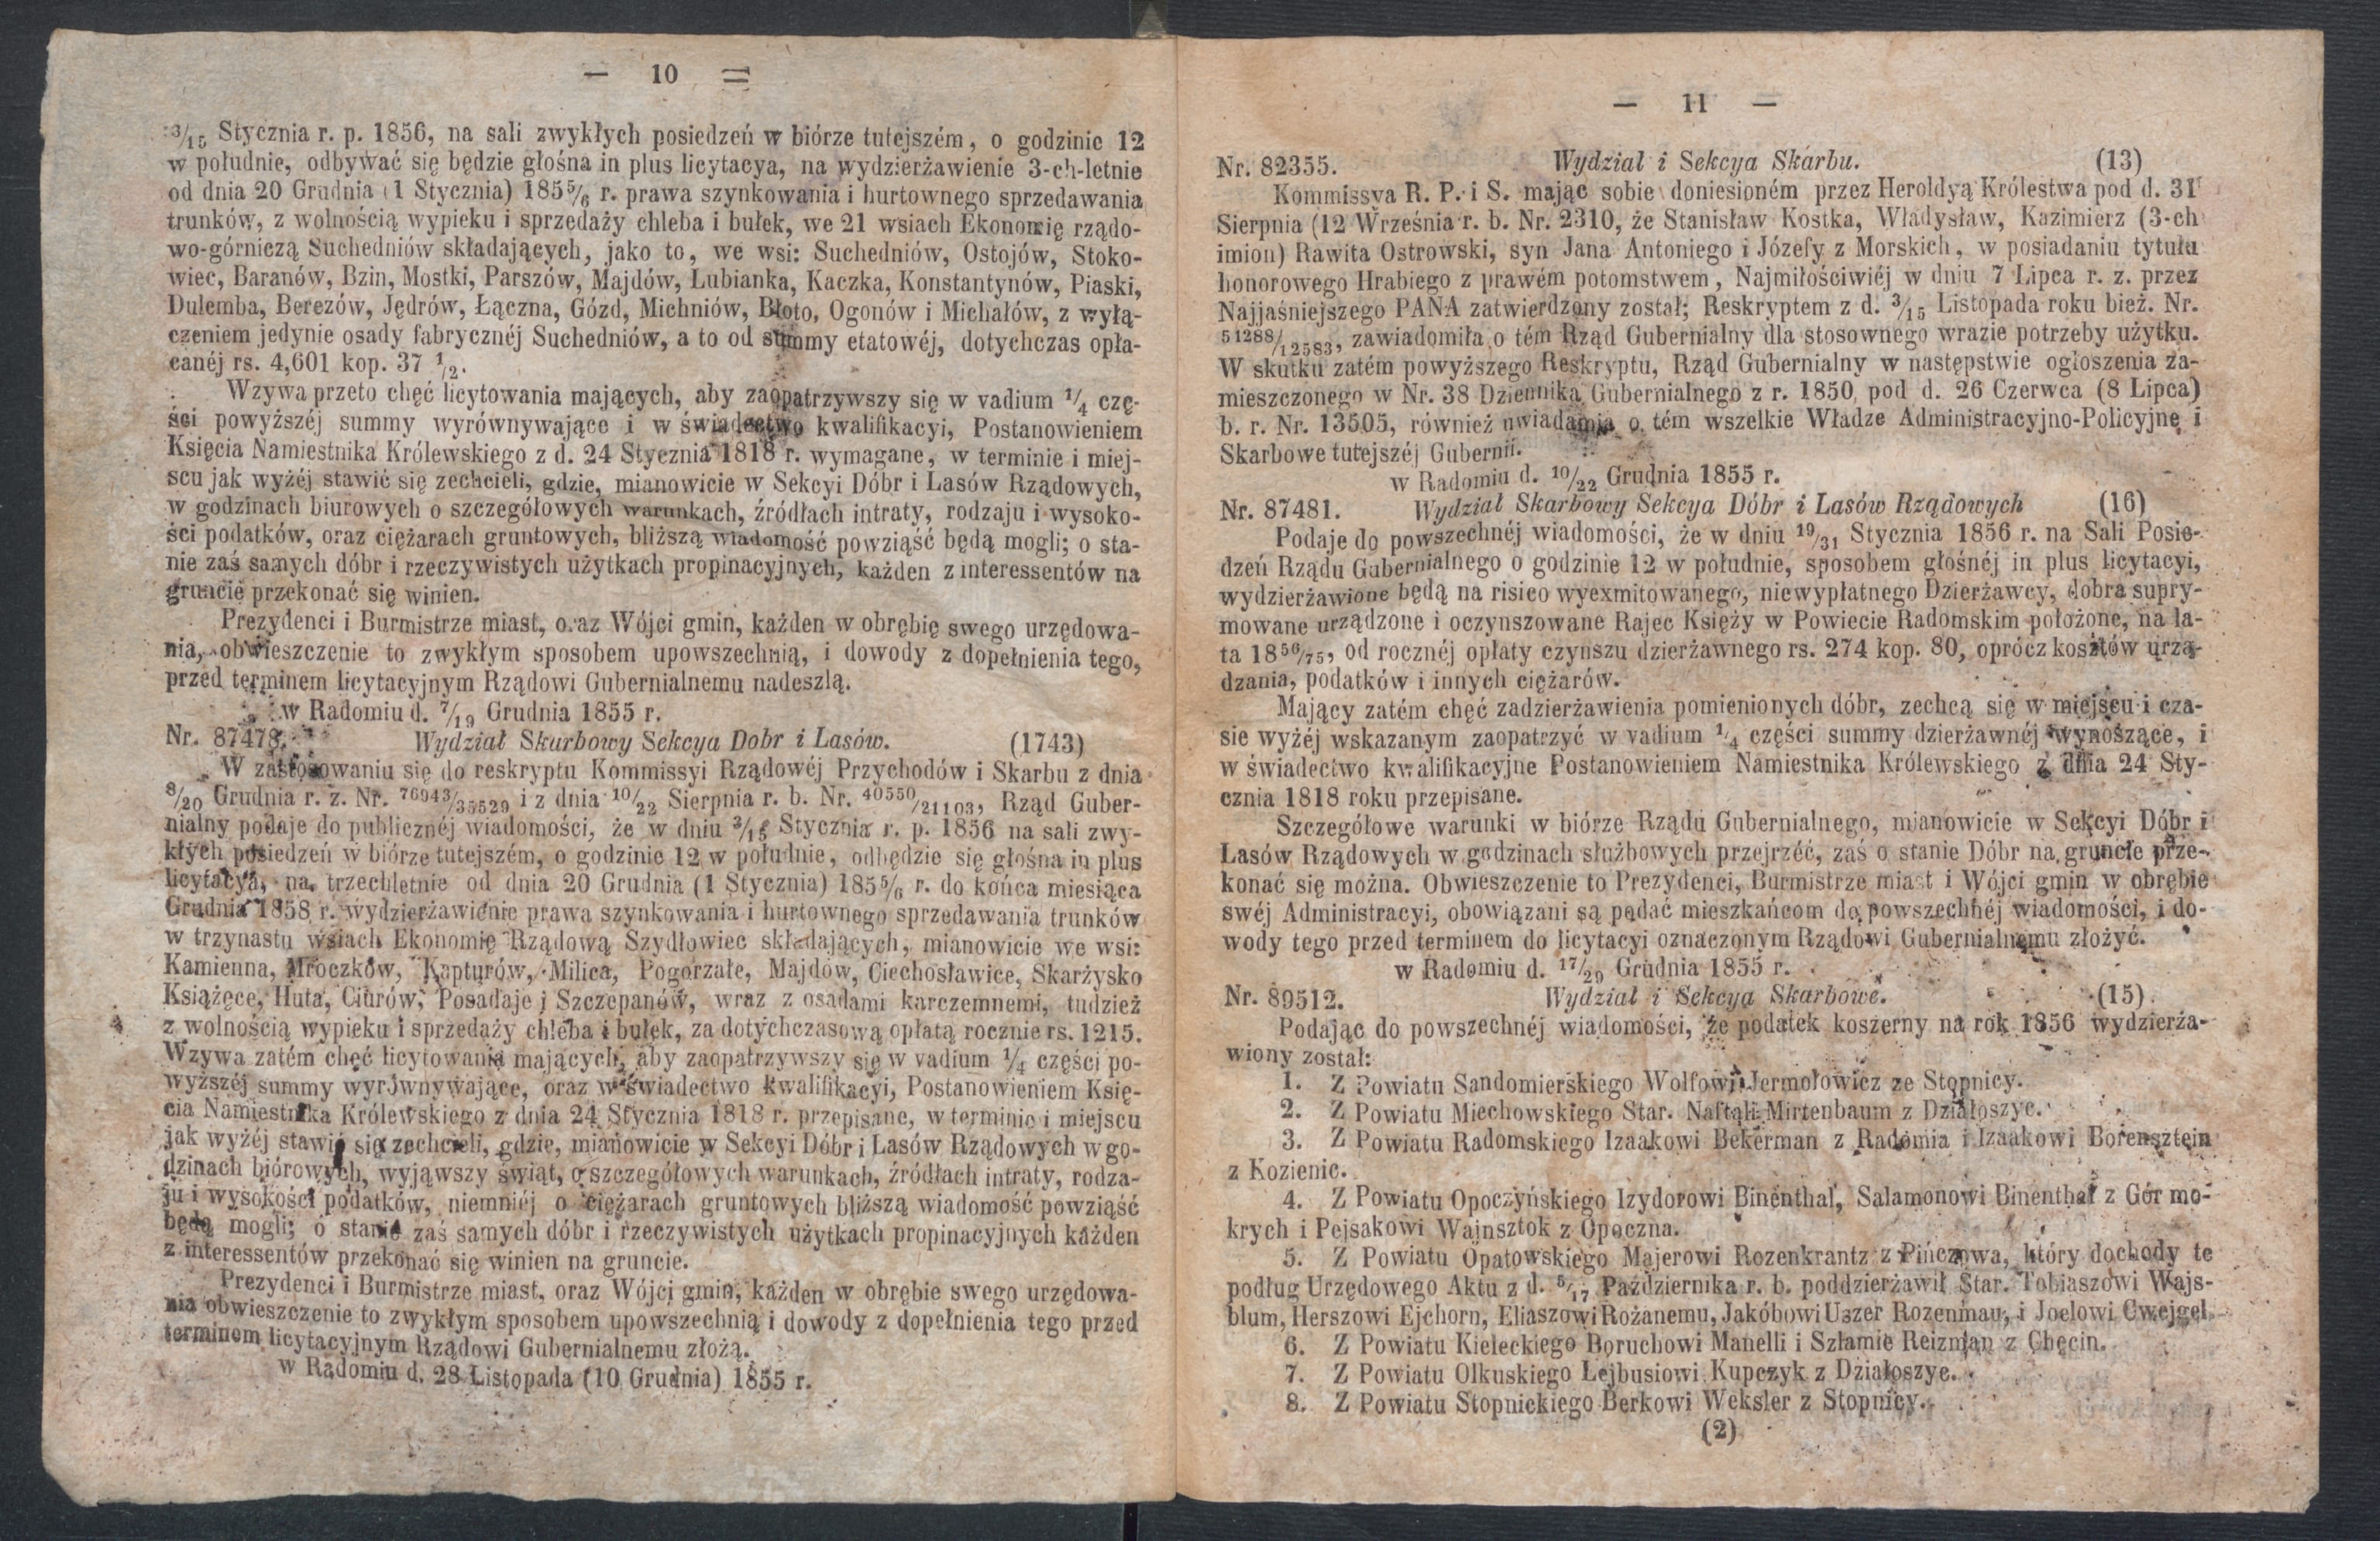 — 10 —
3/15 Stycznia r. p. 1856, na sali zwykłych posiedzeń w biórze tutejszém, o godzinie 12
w południe, odbywać się będzie głośna in plus licytacya, na wydzierżawienie 3-ch-letnie
od dnia 20 Grudnia (1 Stycznia) 185 5/6 r. prawa szynkowania i hurtownego sprzedawania
trunków, z wolnością wypieku i sprzedaży chleba i bułek, we 21 wsiach Ekonomię rządo-
wo-górniczą Suchedniów składających, jako to, we wsi: Suchedniów, Ostojów, Stoko-
wiec, Baranów, Bzin, Mostki, Parszów, Majdów, Łubianka, Kaczka, Konstantynów, Piaski,
Dulemba, Berezów, Jędrów, Łączna, Gózd, Michniów, Błoto, Ogonów i Michałów, z wyłą-
czeniem jedynie osady fabrycznéj Suchedniów, a to od summy etatowéj, dotychczas opła-
canéj rs. 4,601 kop. 37 1/2.
Wzywa przeto chęć licytowania mających, aby zaopatrzywszy się w vadium 1/4 czę-
ści powyższéj summy wyrównywające i w świadectwo kwalifikacyi, Postanowieniem
Księcia Namiestnika Królewskiego z d. 24 Stycznia 1818 r. wymagane, w terminie i miej-
scu jak wyżéj stawić się zechcieli, gdzie, mianowicie w Sekcyi Dóbr i Lasów Rządowych,
w godzinach biurowych o szczegółowych warunkach, źródłach intraty, rodzaju i wysoko-
ści podatków, oraz ciężarach gruntowych, bliższą wiadomość powziąść będą mogli; o sta-
nie zaś samych dóbr i rzeczywistych użytkach propinacyjnych, każden z interessentów na
gruncie przekonać się winien.
Prezydenci i Burmistrze miast, oraz Wójci gmin, każden w obrębie swego urzędowa-
nia, obwieszczenie to zwykłym sposobem upowszechnią, i dowody z dopełnienia tego,
przed terminem licytacyjnym Rządowi Gubernialnemu nadeszlą.
w Radomiu d. 7/19 Grudnia 1855 r.
Nr. 87478. Wydział Skarbowy Sekcya Dobr i Lasów. (1743)
W zastosowaniu się do reskryptu Kommissyi Rządowéj Przychodów i Skarbu z dnia
8/20 Grudnia r. z. Nr. 76943/35529 i z dnia 10/22 Sierpnia r. b. Nr. 40550/21103, Rząd Guber-
nialny podaje do publicznéj wiadomości, że w dniu 3/15 Stycznia r. p. 1856 na sali zwy-
kłych posiedzeń w biórze tutejszém, o godzinie 12 w południe, odbędzie się głośna in plus
licytacya, na trzechletnie od dnia 20 Grudnia (1 Stycznia) 185 5/6 r. do końca miesiąca
Grudnia 1858 r. wydzierżawienie prawa szynkowania i hurtownego sprzedawania trunków
w trzynastu wsiach Ekonomię Rządową Szydłowiec składających, mianowicie we wsi:
Kamienna, Mroczków, Kapturów, Milica, Pogorzałe, Majdów, Ciechosławice, Skarżysko
Książęce, Huta, Ciurów, Posadaje i Szczepanów, wraz z osadami karczemnemi, tudzież
z wolnością wypieku i sprzedaży chleba i bułek, za dotychczasową opłatą rocznie rs. 1215.
Wzywa zatém chęć licytowania mających, aby zaopatrzywszy się w vadium 1/4 części po-
wyższéj summy wyrównywające, oraz w świadectwo kwalifikacyi, Postanowieniem Księ-
cia Namiestnika Królewskiego z dnia 24 Stycznia 1818 r. przepisane, w terminie i miejscu
jak wyżéj stawić się zechcieli, gdzie, mianowicie w Sekcyi Dóbr i Lasów Rządowych w go-
dzinach biórowych, wyjąwszy świąt, o szczegółowych warunkach, źródłach intraty, rodza-
ju i wysokości podatków, niemniéj o ciężarach gruntowych bliższą wiadomość powziąść
będą mogli; o stanie zaś samych dóbr i rzeczywistych użytkach propinacyjnych każden
z interessentów przekonać się winien na gruncie.
Prezydenci i Burmistrze miast, oraz Wójci gmin, każden w obrębie swego urzędowa-
nia obwieszczenie to zwykłym sposobem upowszechnią i dowody z dopełnienia tego przed
terminem licytacyjnym Rządowi Gubernialnemu złożą.
w Radomiu d. 28 Listopada (10 Grudnia) 1855 r.
— 11 —
Nr. 82355. Wydział i Sekcya Skarbu. (13)
Kommissya R. P. i S. mając sobie doniesioném przez Heroldyą Królestwa pod d. 31
Sierpnia (12 Września r. b. Nr. 2310, że Stanisław Kostka, Władysław, Kazimierz (3-ch
imion) Rawita Ostrowski, syn Jana Antoniego i Józefy z Morskich, w posiadaniu tytułu
honorowego Hrabiego z prawém potomstwem, Najmiłościwiéj w dniu 7 Lipca r. z. przez
Najjaśniejszego PANA zatwierdzony został; Reskryptem z d. 3/15 Listopada roku bież. Nr.
51288/12583, zawiadomiła o tém Rząd Gubernialny dla stosownego wrazie potrzeby użytku.
W skutku zatém powyższego Reskryptu, Rząd Gubernialny w następstwie ogłoszenia za-
mieszczonego w Nr. 38 Dziennika Gubernialnego z r. 1850 pod d. 26 Czerwca (8 Lipca)
b. r. Nr. 13505, również uwiadamia o tém wszelkie Władze Administracyjno-Policyjne i
Skarbowe tutejszéj Gubernii.
w Radomiu d. 10/22 Grudnia 1855 r.
Nr. 87481. Wydział Skarbowy Sekcya Dóbr i Lasów Rządowych (16)
Podaje do powszechnéj wiadomości, że w dniu 19/31 Stycznia 1856 r. na Sali Posie-
dzeń Rządu Gubernialnego o godzinie 12 w południe, sposobem głośnéj in plus licytacyi,
wydzierżawione będą na risico wyexmitowanego, niewypłatnego Dzierżawcy, dobra supry-
mowane urządzone i oczynszowane Rajec Księży w Powiecie Radomskim położone, na la-
ta 18 56/75, od rocznéj opłaty czynszu dzierżawnego rs. 274 kop. 80, oprócz kosztów urzą-
dzania, podatków i innych ciężarów.
Mający zatém chęć zadzierżawienia pomienionych dóbr, zechcą się w miejscu i cza-
sie wyżéj wskazanym zaopatrzyć w vadium 1/4 części summy dzierżawnéj wynoszące, i
w świadectwo kwalifikacyjne Postanowieniem Namiestnika Królewskiego z dnia 24 Sty-
cznia 1818 roku przepisane.
Szczegółowe warunki w biórze Rządu Gubernialnego, mianowicie w Sekcyi Dóbr i
Lasów Rządowych w godzinach służbowych przejrzéć, zaś o stanie Dóbr na gruncie prze-
konać się można. Obwieszczenie to Prezydenci, Burmistrze miast i Wójci gmin w obrębie
swéj Administracyi, obowiązani są podać mieszkańcom do powszechnéj wiadomości, i do-
wody tego przed terminem do licytacyi oznaczonym Rządowi Gubernialnemu złożyć.
w Radomiu d. 17/29 Grudnia 1855 r.
Nr. 89512. Wydział i Sekcya Skarbowe. (15)
Podając do powszechnéj wiadomości, że podatek koszerny na rok 1856 wydzierża-
wiony został:
1. Z Powiatu Sandomierskiego Wolfowi Jermołowicz ze Stopnicy.
2. Z Powiatu Miechowskiego Star. Naftali Mirtenbaum z Działoszyc.
3. Z Powiatu Radomskiego Izaakowi Bekerman z Radomia i Izaakowi Borensztein
z Kozienic.
4. Z Powiatu Opoczyńskiego Izydorowi Binenthal, Salamonowi Binenthal z Gór mo-
krych i Pejsakowi Wajnsztok z Opoczna.
5. Z Powiatu Opatowskiego Majerowi Rozenkrantz z Pińczowa, który dochody te
podług Urzędowego Aktu z d. 5/17 Października r. b. poddzierżawił Star. Tobiaszowi Wajs-
blum, Herszowi Ejchorn, Eliaszowi Rożanemu, Jakóbowi Uszer Rozenman, i Joelowi Cwejgel.
6. Z Powiatu Kieleckiego Boruchowi Manelli i Szlamie Reizman z Chęcin.
7. Z Powiatu Olkuskiego Lejbusiowi Kupczyk z Działoszyc.
8. Z Powiatu Stopnickiego Berkowi Weksler z Stopnicy.
(2)